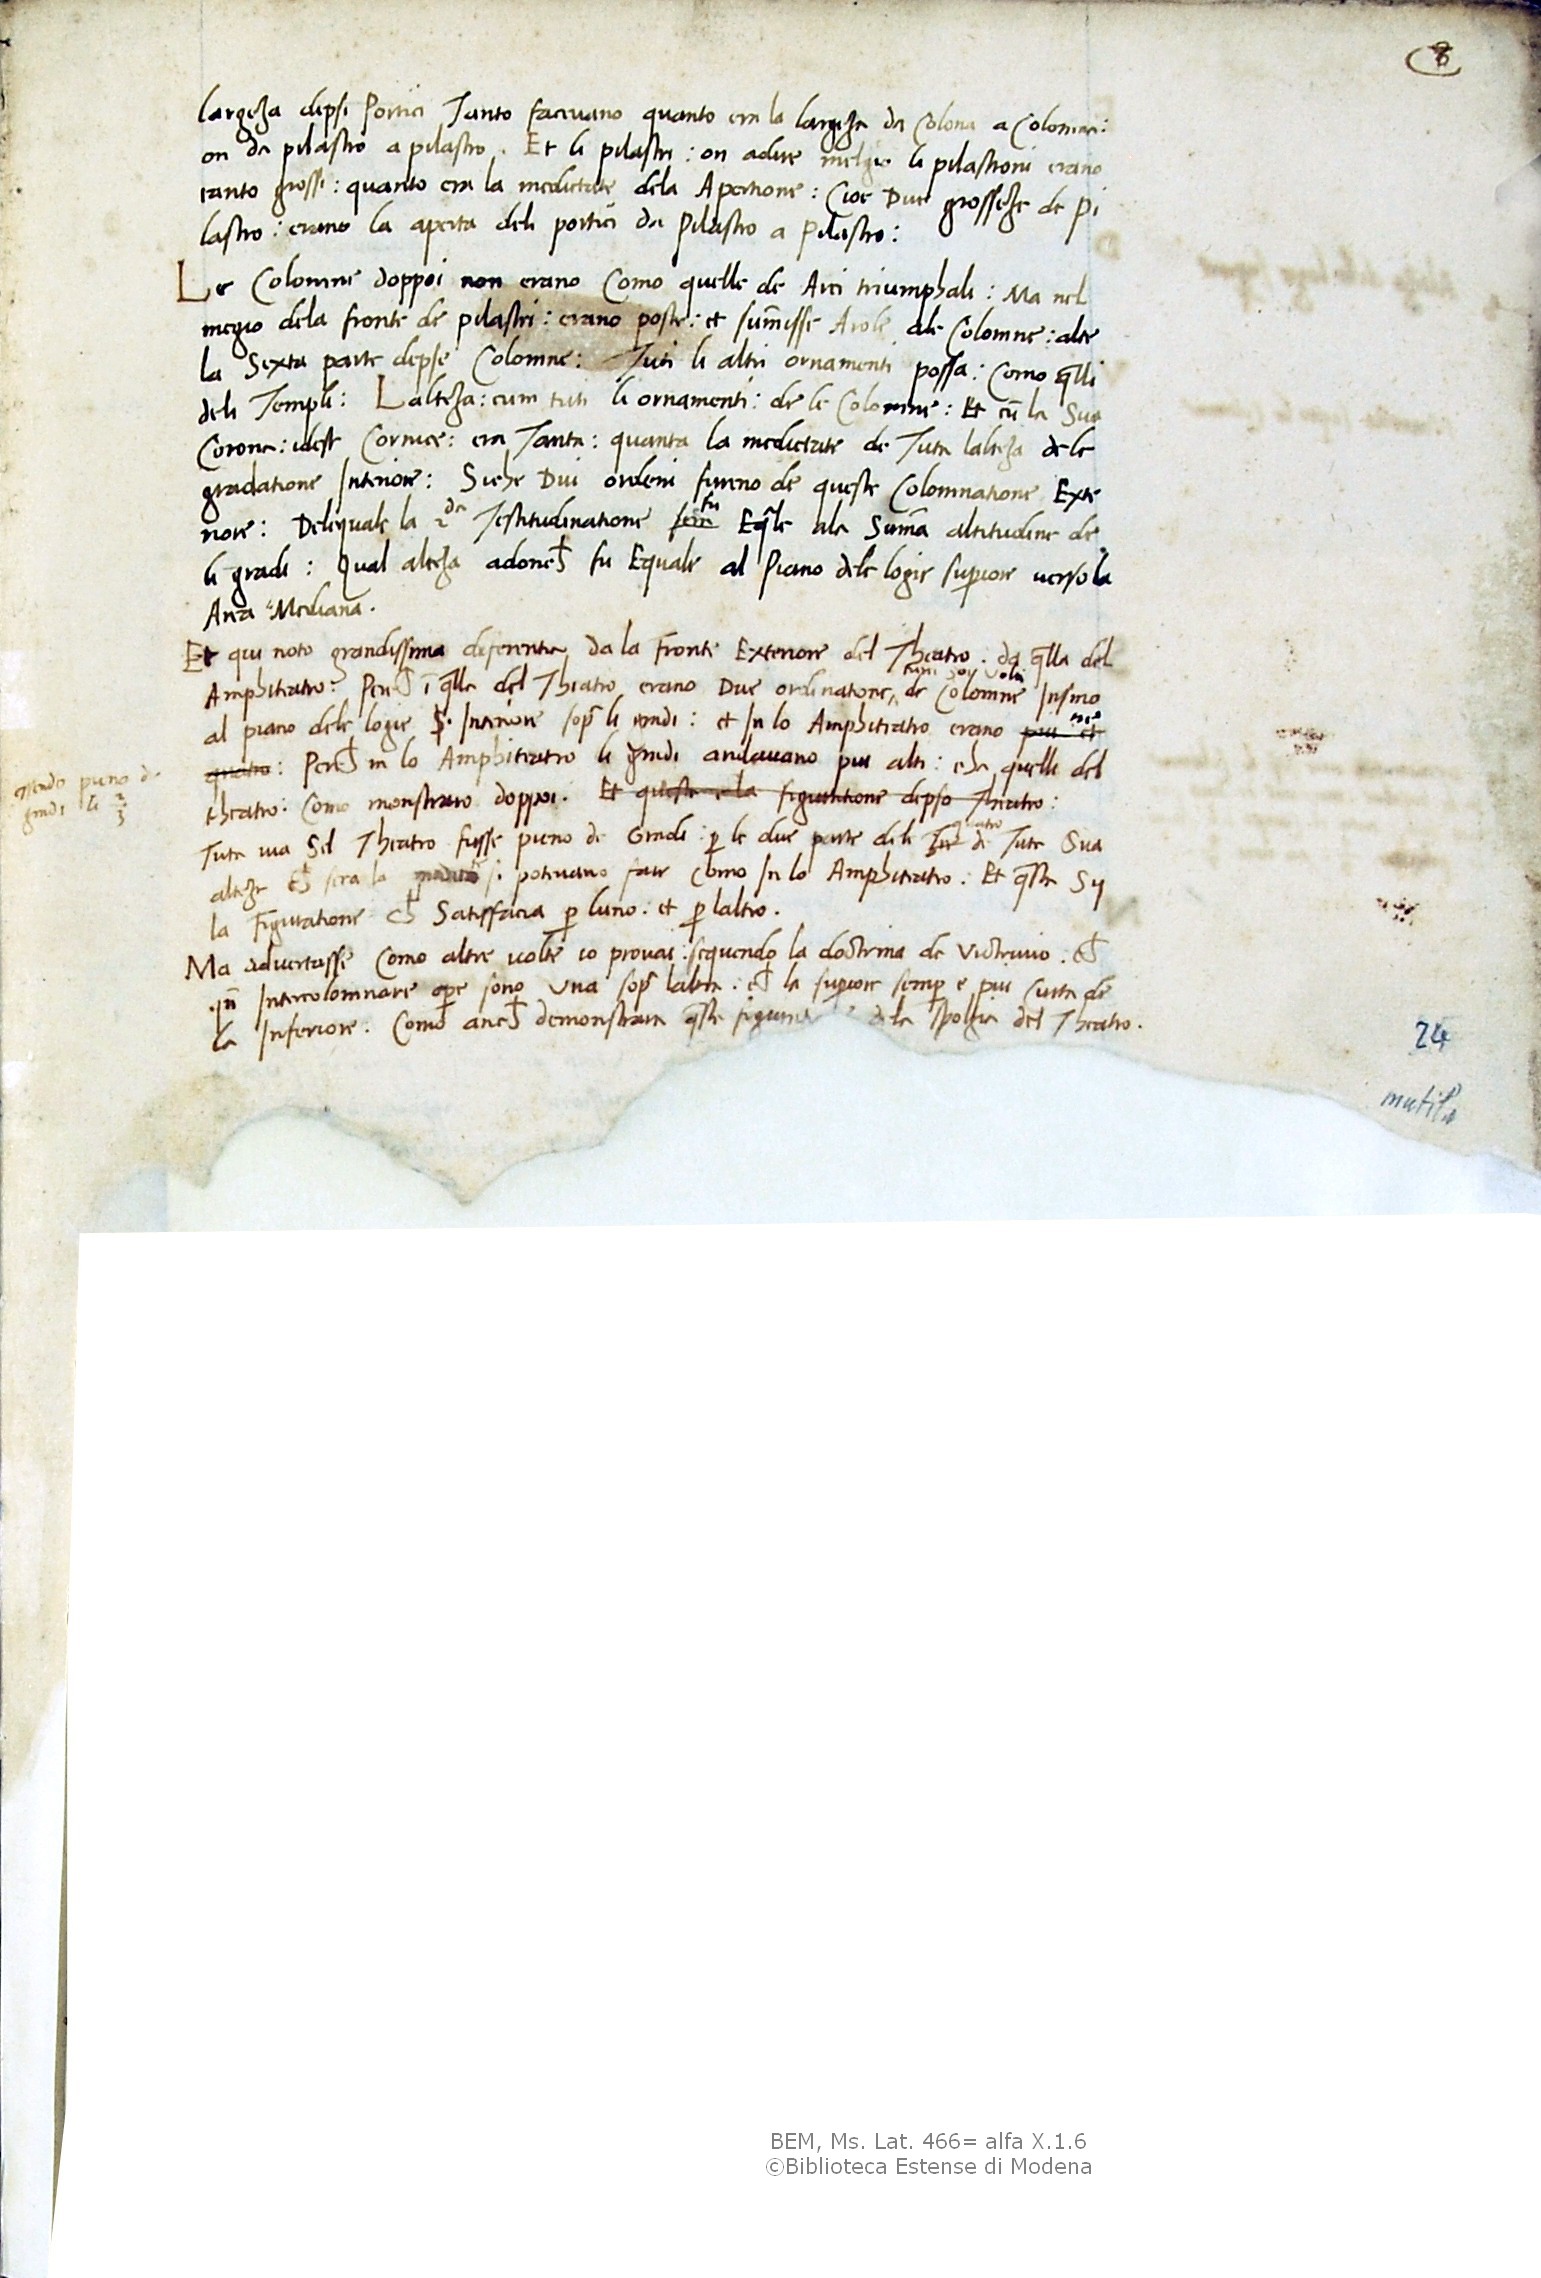 8
largeza depsi Portici Tanto facevano quanto era la largeza da Colona a Colomna:
on da pilastro a pilastro. Et li pilastri: on adire melgio li pilastroni erano
tanto grossi: quanto era la medietate dela Apertione: Cioe Due grosseze de Pi
lastro: erano la aperta deli portici da Pilastro a Pilastro:
Le Colomne doppoi non erano Como quelle de Arci triumphali: Ma nel
megio dela fronte de pilastri: erano poste: et sum̄isse Arole ale Colomne: alte
la Sexta parte depse Colomne: Tuti li altri ornamenti possa: Como q̄lli
deli Templi: Lalteza: cum tuti li ornamenti: de le Colomne: Et cū la Sua
Corona: idest Cornice: era Tanta: quanta la medietate de Tuta lalteza dele
gradatione Interiore: Siche Dui ordeni fureno de queste Colomnatione Exte
riore: Delequale la 2da Testitudinatione fu Eq̄le ala Sum̄a altitudine de
li gradi: Qual alteza adonch fu Equale al Piano dele logie supiore verso la
Area Mediana.
Et qui noto grandissima deferentia da la fronte Exteriore del Theatro. da q̄lla del
Amphitiatro: Perch ī q̄lla del Theatro erano Due ordinatione de Colomne Insino
al piano dele logie Interiore sop̄ li gradi: et In lo Amphitiatro erano piu et
quatro: Perch in lo Amphitiatro li gradi andavano piu alti: cha quelli del
theatro: Como monstraro doppoi. Et queste e la figuratione depso Theatro:
essendo pieno de
gradi li 2/3
Tuta via Sel Theatro fusse pieno de Gradi: p le due parte dele quatro de Tuta Sua
alteze ch sera la si potevano fare Como In lo Amphitiatro: Et q̄sta Sij
la Figuratione ch Satisfacia p luno: et p laltro.
Ma advertasse Como altre volte io provai: sequendo la doctrina de Victruvio: ch
in Intercolomnare ope sono Una sop̄ laltra: ch la supiore semp e piu Curta de
la Inferiore. Como anch demonstrara q̄sta dela spolgia del Theatro.
24
mutilo
BEM, Ms. Lat. 466= alfa X.1.6
©Biblioteca Estense di Modena